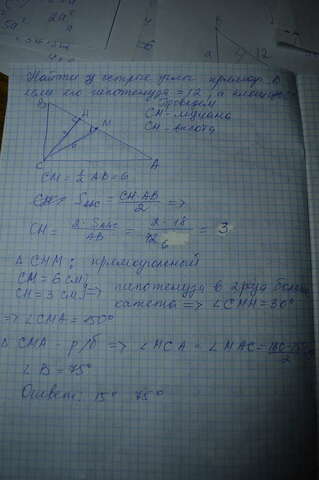 5a² 2a²
a
B
a
12
Найти острые углы прямоуг. Δ
если его гипотенуза = 12, а площадь
Проведем
CM - медиана
CH - высота
B
H
M
6
C
A
CM = ½ AB = 6
CH S_ABC = CH·AB/2 =>
CH = 2·S_ABC/AB = 2·18/12 6 = 3
Δ CHM: прямоугольный
CM = 6 см
CH = 3 см => гипотенуза в 2 раза больше
катета => ∠CMH = 30°
=> ∠CMA = 150°
Δ CMA - р/б => ∠MCA = ∠MAC = 180-150/2
∠B = 75°
Ответ: 15° 75°